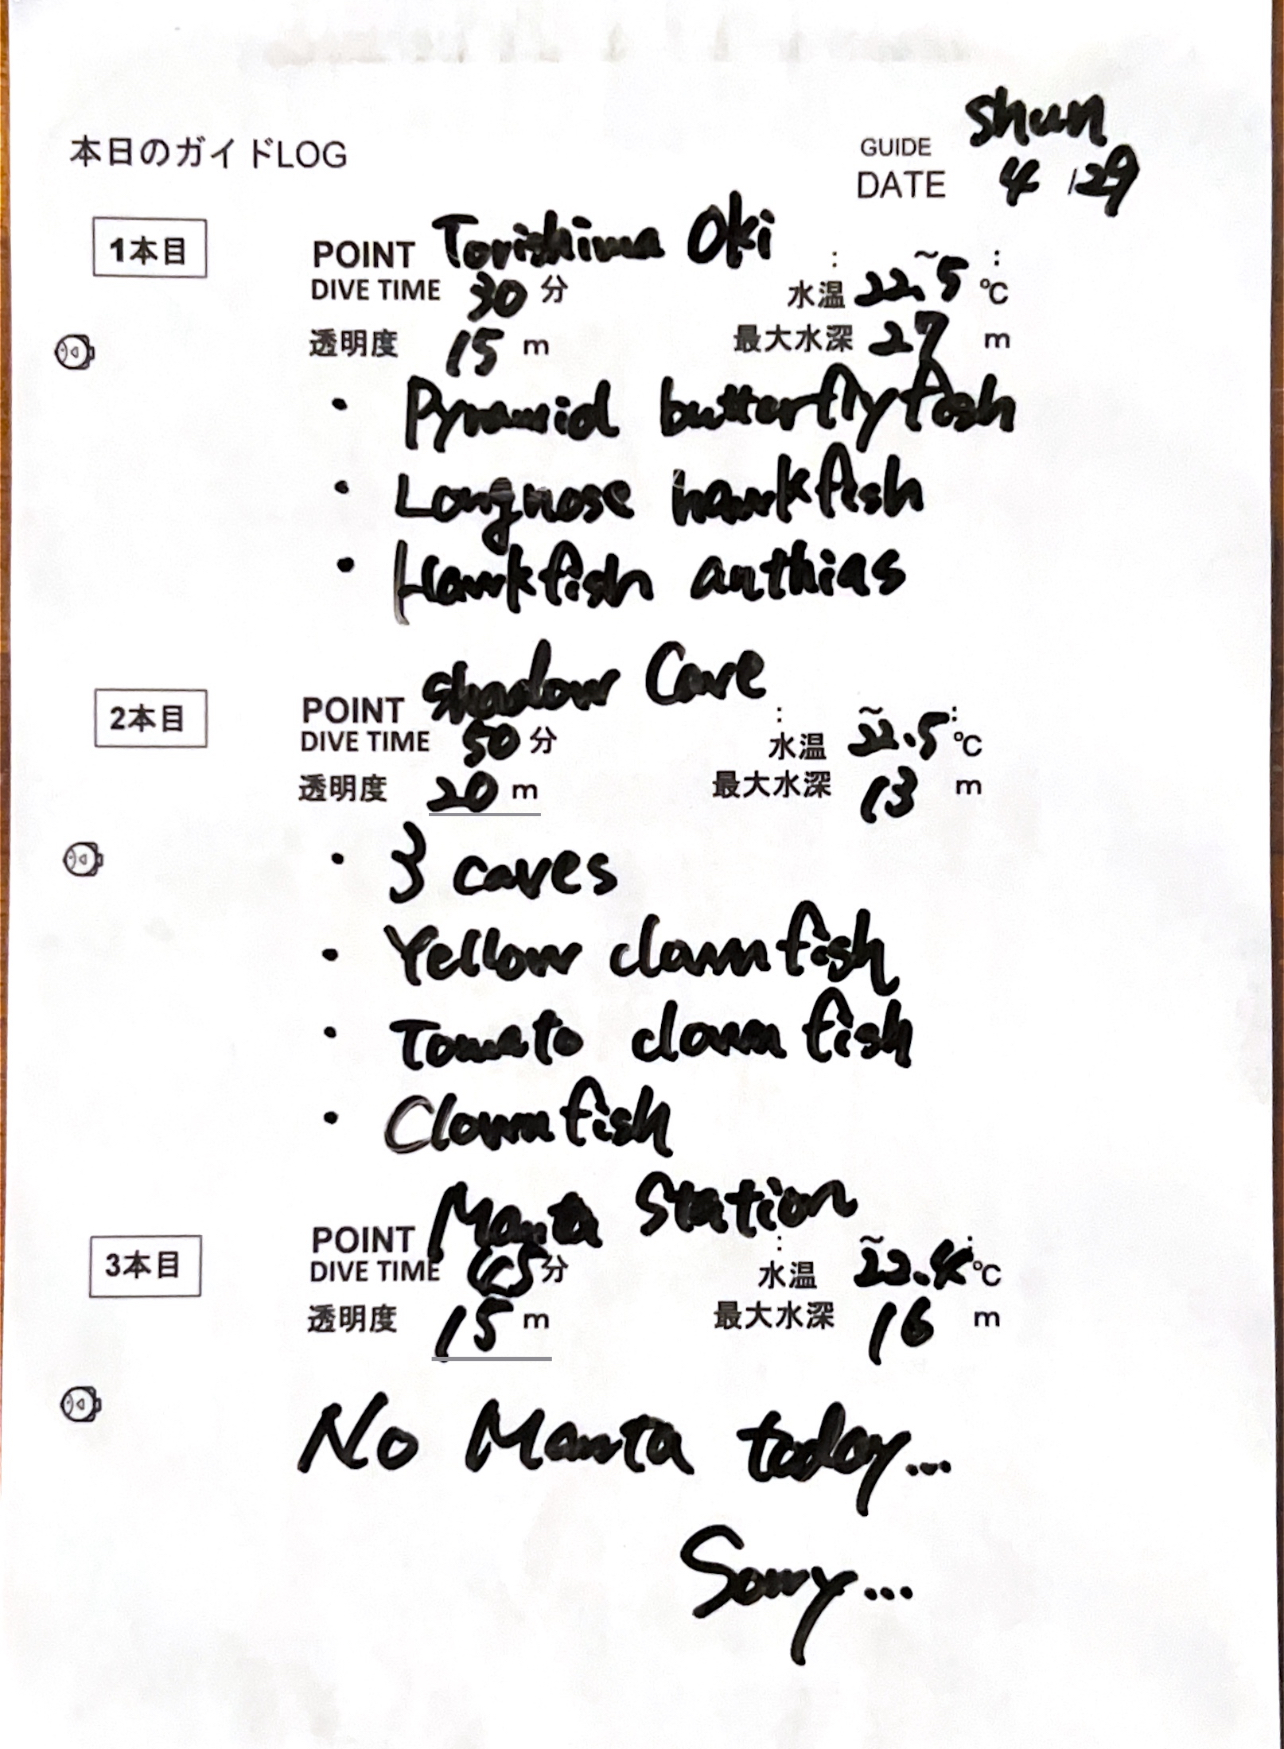 本日のガイドLOG
GUIDE Shun
DATE 4/29
1本目
POINT Torishima Oki : ~ :
DIVE TIME 30分 水温 22.5℃
透明度 15m 最大水深 27m
・Pyramid butterflyfish
・Longnose hawkfish
・Hawkfish anthias
2本目
POINT Shadow Cave : ~ :
DIVE TIME 50分 水温 22.5℃
透明度 20m 最大水深 13m
・3 caves
・Yellow clownfish
・Tomato clownfish
・Clownfish
3本目
POINT Manta Station : ~ :
DIVE TIME 45分 水温 22.4℃
透明度 15m 最大水深 16m
No Manta today...
Sorry...